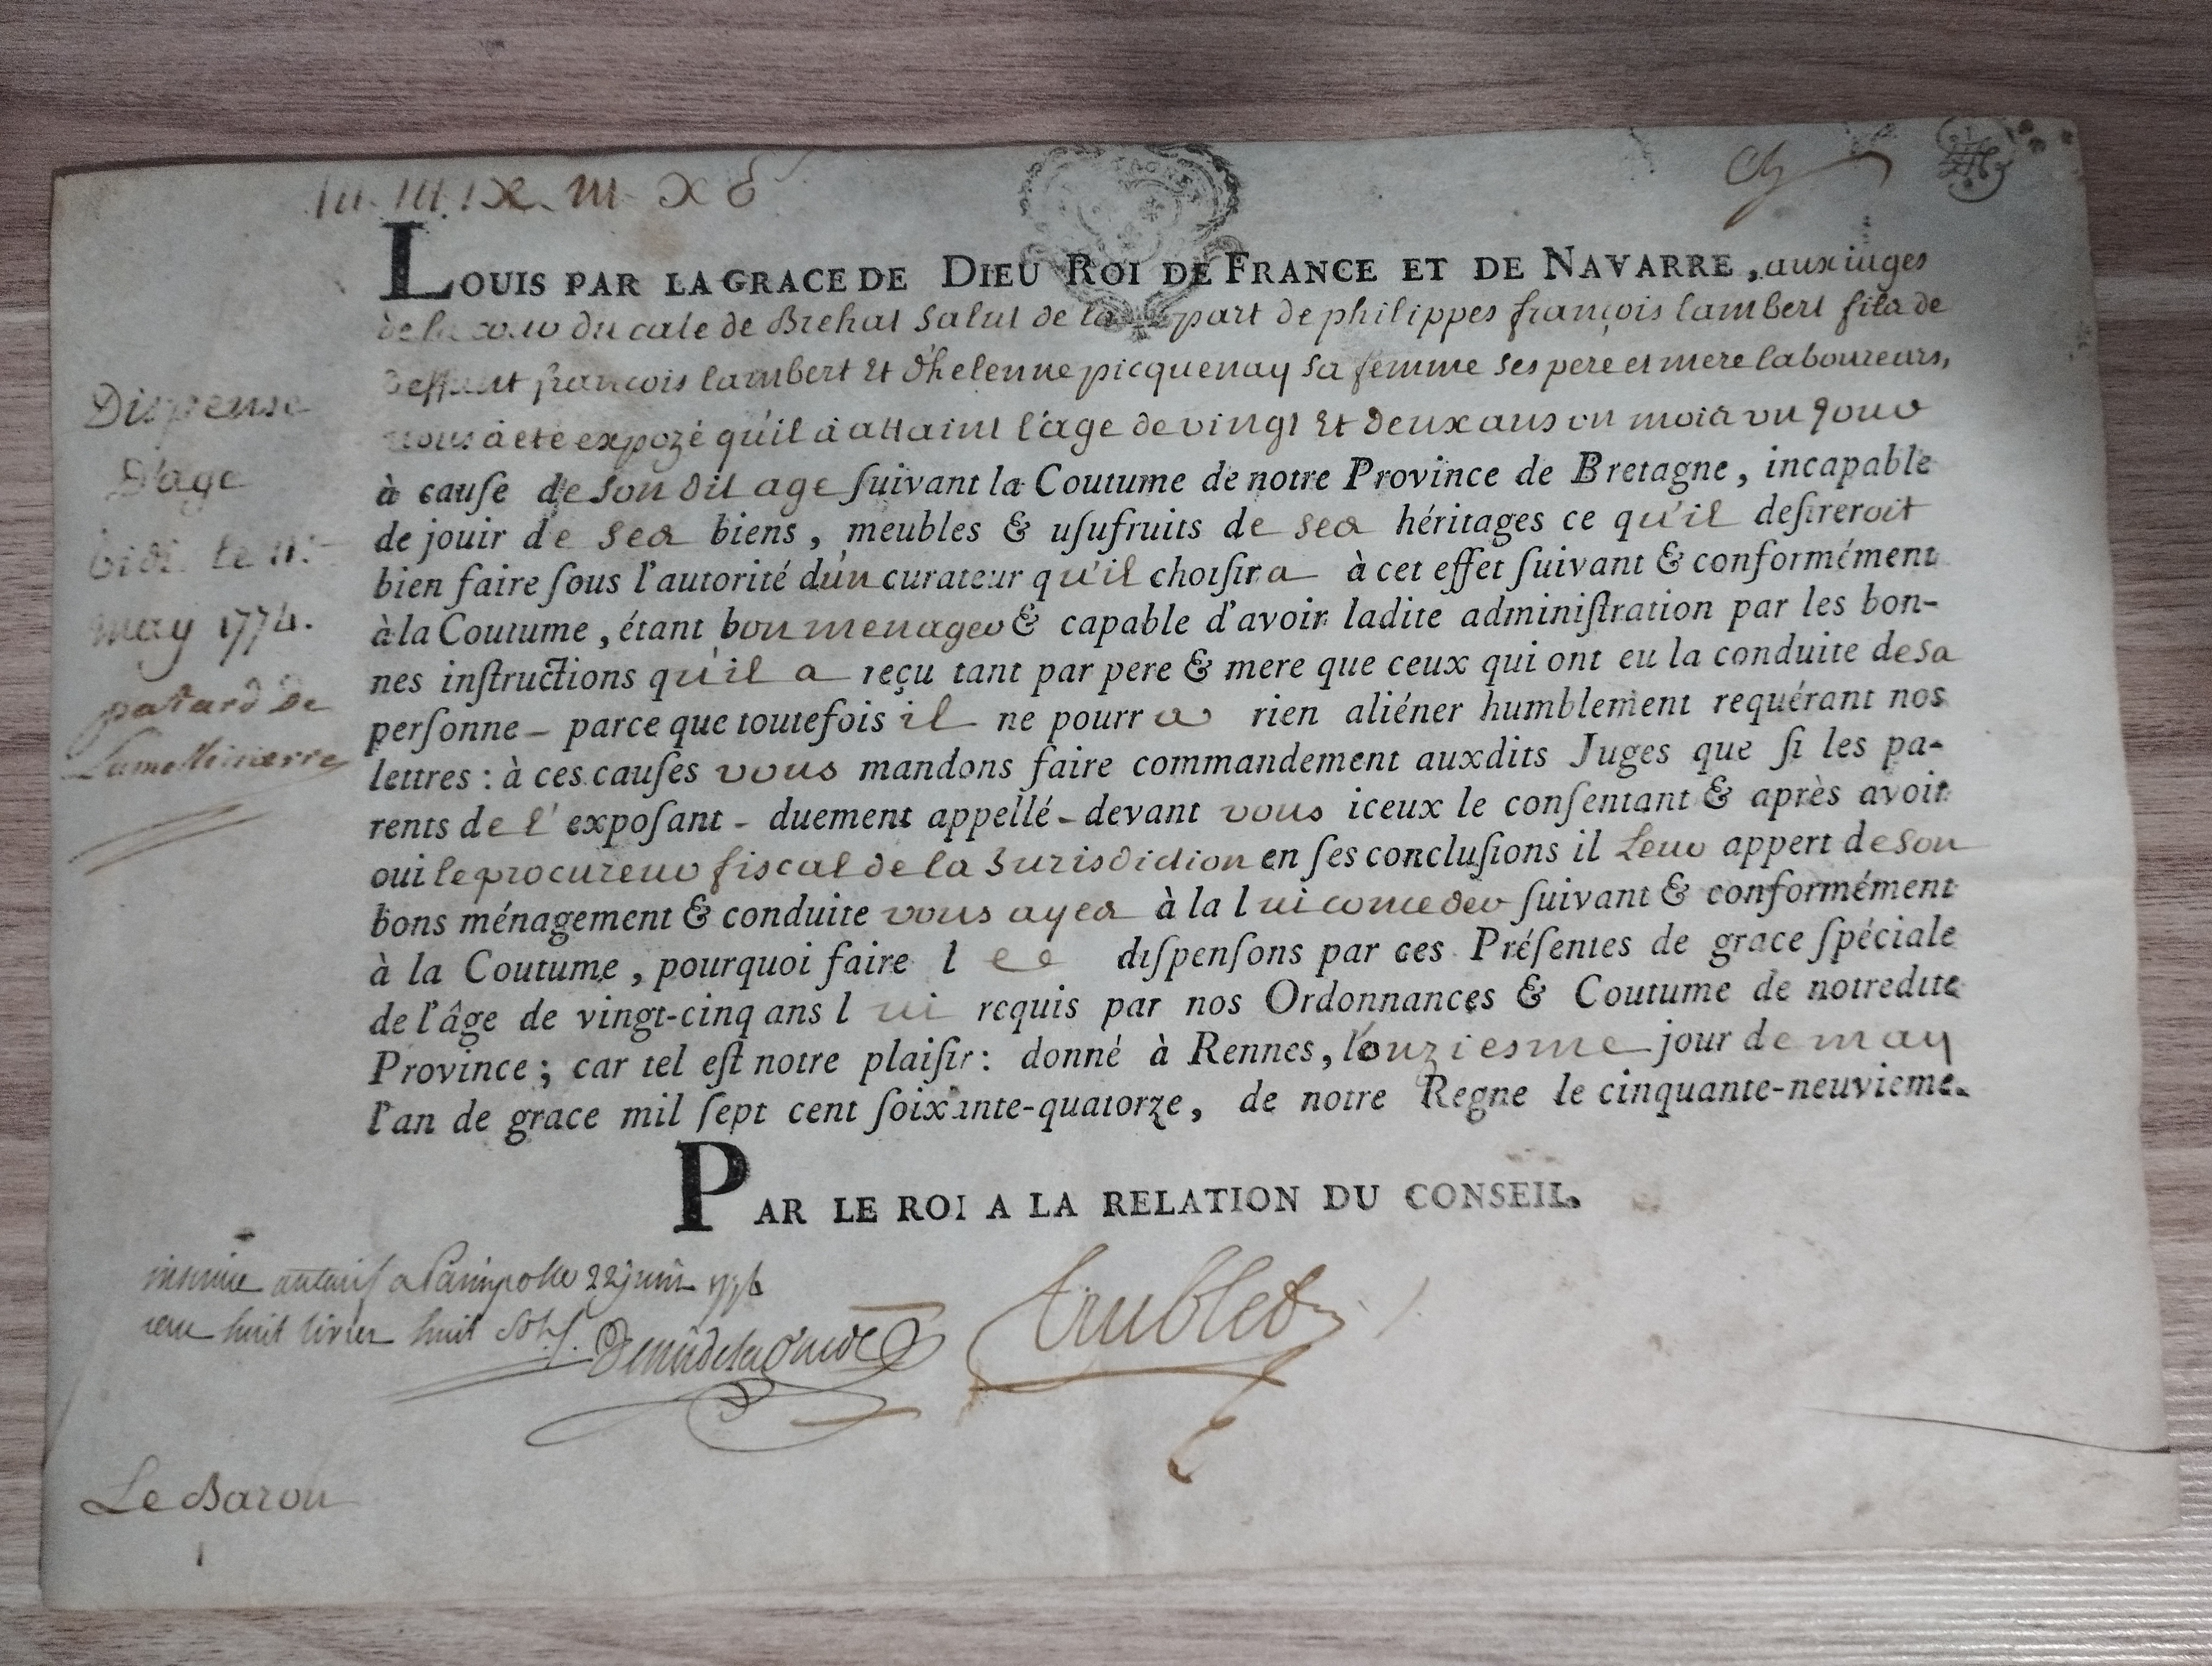 LOUIS PAR LA GRACE DE DIEU ROI DE FRANCE ET DE NAVARRE, aux iuges
de la du cale de Brehat Salut de la part de philippes françois lambert fils de
deffunt françois lambert Et d'helenne picquenay sa femme ses pere et mere laboureurs,
nous à eté expozé qu'il à attaint l'age de vingt Et deux ans un mois un jour
à cauſe de son dit age ſuivant la Coutume de notre Province de Bretagne, incapable
de jouir de ses biens, meubles & uſufruits de ses héritages ce qu'il deſireroit
bien faire ſous l'autorité d'un curateur qu'il choiſira à cet effet ſuivant & conformément
à la Coutume, étant bon menager & capable d'avoir ladite adminiſtration par les bon-
nes inſtructions qu'il a reçu tant par pere & mere que ceux qui ont eu la conduite de sa
perſonne - parce que toutefois il ne pourra rien aliéner humblement requérant nos
lettres : à ces cauſes vous mandons faire commandement auxdits Juges que ſi les pa-
rents de l'expoſant - duement appellé - devant vous iceux le conſentant & après avoir
oui le procureur fiscal de la Jurisdiction en ſes concluſions il Leur appert de son
bons ménagement & conduite vous ayes à la lui conceder ſuivant & conformément
à la Coutume, pourquoi faire l diſpenſons par ces Préſentes de grace ſpéciale
de l'âge de vingt-cinq ans lui requis par nos Ordonnances & Coutume de notredite
Province ; car tel eſt notre plaiſir : donné à Rennes, l'onziesme jour de may
l'an de grace mil ſept cent ſoixante-quatorze, de notre Regne le cinquante-neuvieme.
PAR LE ROI A LA RELATION DU CONSEIL.
Dispense
D'age
le 11.
may 1774.
patard De
Lamellinierre
a Paimpol le 22 juin
huit livres huit
trublet
Le Baron